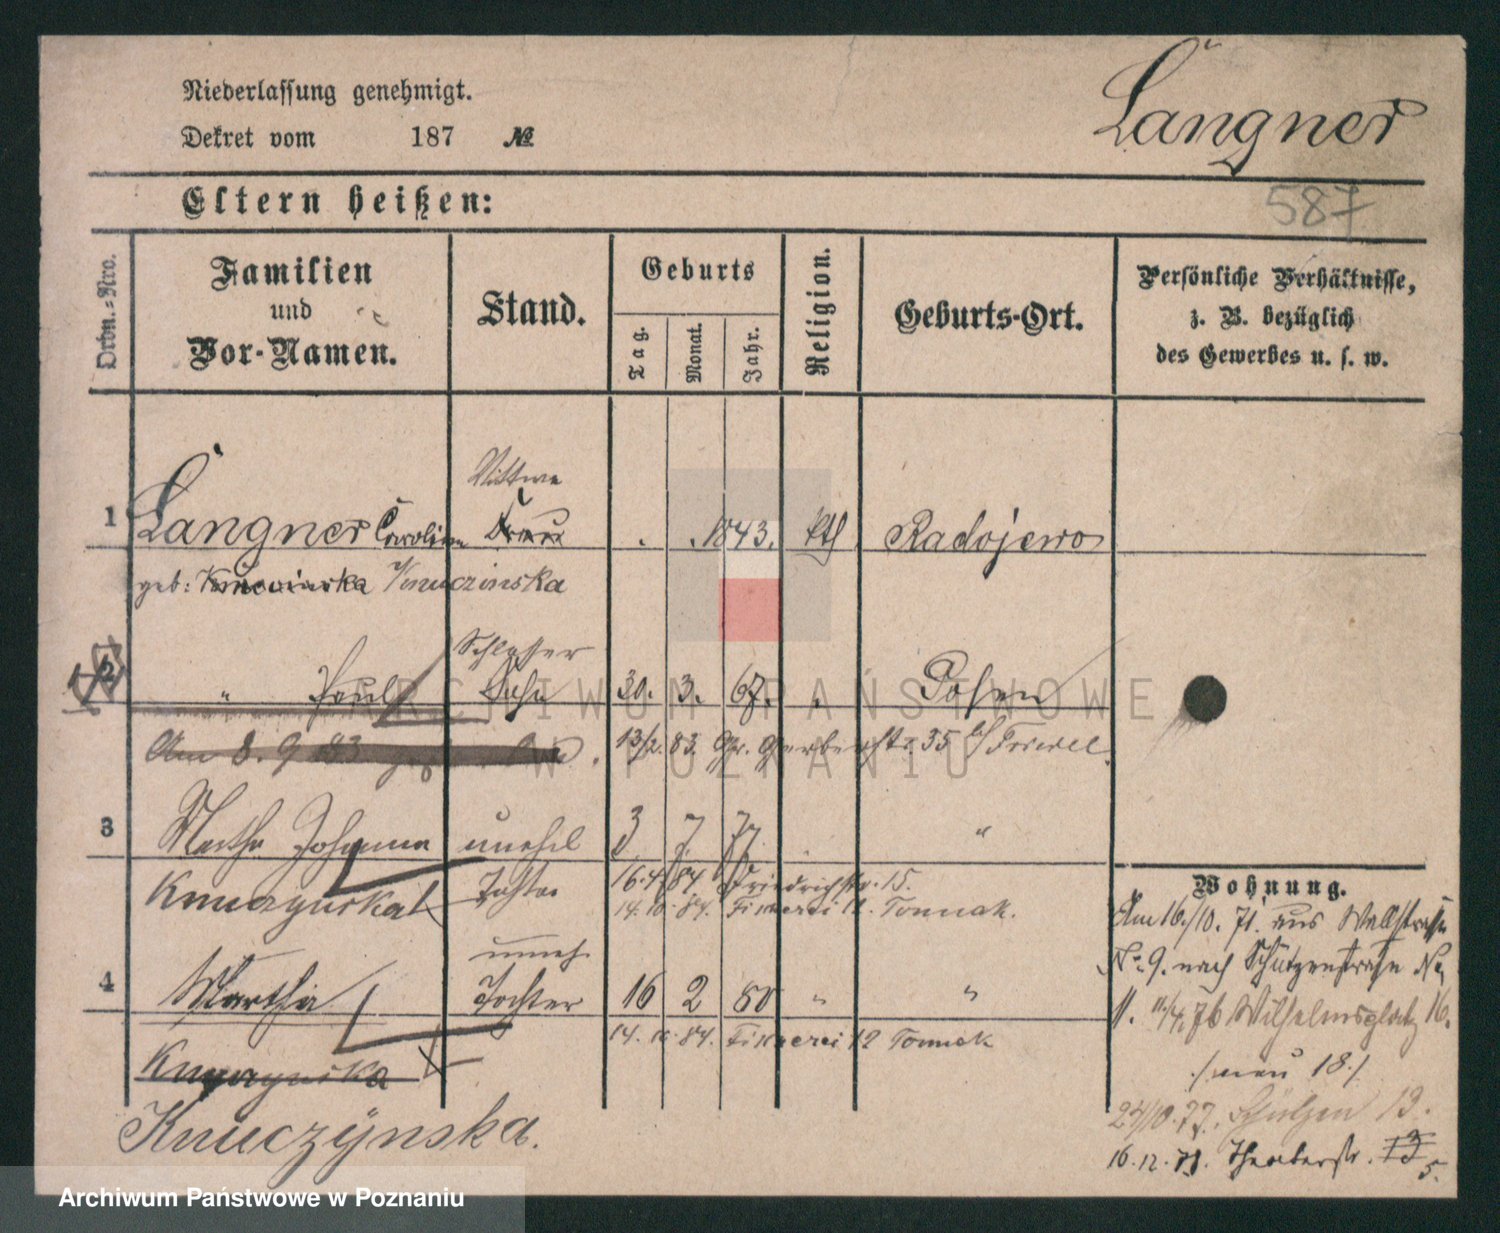 Niederlassung genehmigt.
Dekret vom 187 №
Langner
587
Eltern heißen:
Ordn.=Nro.
Familien
und
Vor-Namen.
Stand.
Geburts
Tag.
Monat.
Jahr.
Religion.
Geburts-Ort.
Persönliche Verhältnisse,
z. B. bezüglich
des Gewerbes u. s. w.
Wittwe
1 Langner Caroline Frau . . 1843. kth Radojewo
geb: Knuczinska
Schlosser
2 " Paul Sohn 30. 3. 67. " Posen
Am 8. 9 83
13/2. 83. Gr. Gerberstr. 35 b/
3 Martha Johanna unehel 3 7 77 "
Knuczynska Tochter 16.4 84 Friedrichstr. 15.
14. 10. 84. Fischerei 12. Tomiak.
uneh.
4 Martha Tochter 16 2 80 " "
14. 10. 84. Fischerei 12 Tomiak
Knuczynska
Knuczÿnska.
Wohnung.
Am 16./10. 71. aus Wallstrasse
No. 9. nach Schützenstrasse No
11. 11/4. 76 Wilhelmsplatz 16.
./. neu 18./.
24/10. 77. Schützen 13.
16. 12. 71. Theaterstr. 13 5.
ARCHIWUM PAŃSTWOWE
W POZNANIU
Archiwum Państwowe w Poznaniu